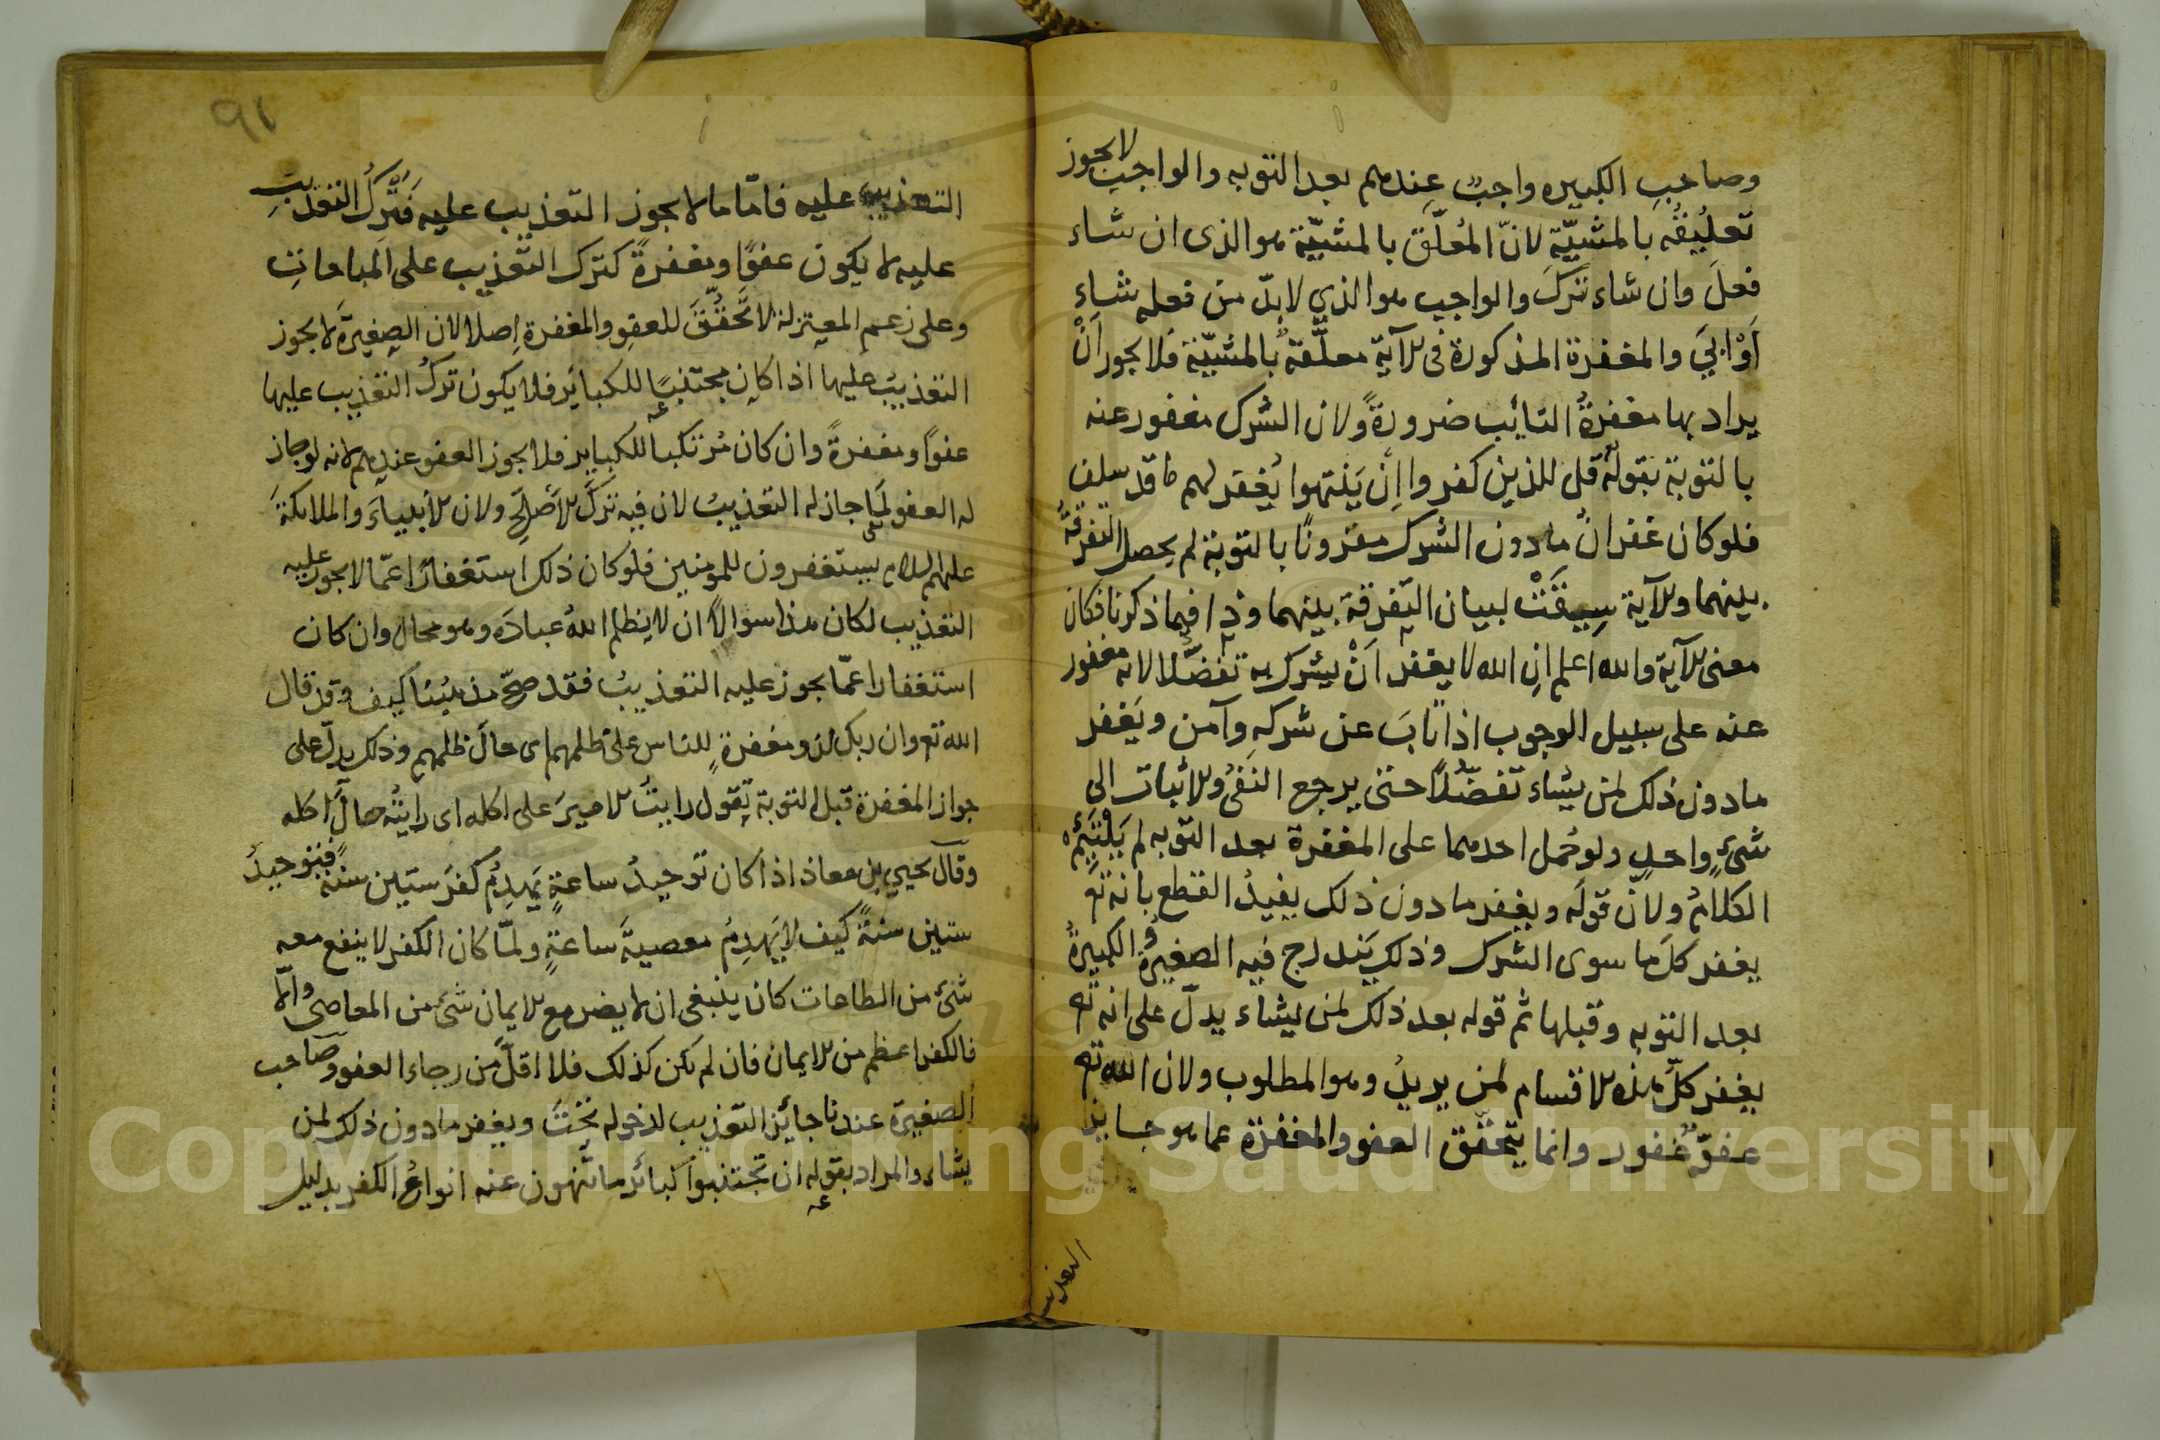 وصاحبِ الكبيره واجبٌ عندهم بعد التوبه والواجب لا يجوز
تعليقُه بالمشيّة لانّ المُعلَّق بالمشيّة هو الذى ان شاء
فعلَ وان شاء تركَ والواجب هو الذي لابدّ من فعله شاء
اَوْ ابيَ والمغفرة المذكورة فى الآية معلَّقة بالمشيّة فلا يجوز اَنْ
يراد بها مغفرةُ التايب ضرورةً ولان الشرك مغفور عنه
بالتوبة بقوله قل للذين كفروا اِن يَنتهوا يُغفر لهم ما قد سلف
فلو كان غفرانُ مادون الشرك مقرونًا بالتوبة لم يحصل التفرقةُ
بينهما والآية سِيقَتْ لبيان التفرقة بينهما وذا فيما ذكرنا فكان
معنى الآية والله اعلم انِ الله لا يغفر اَنْ يشرك به تفضّلا لانه مغفور
عنه على سبيل الوجوب اذا تابَ عن شركهِ وآمن ويَغفر
مادون ذلك لمن يشاء تفضّلاً حتى يرجع النفىُ والاثبات الى
شئٍ واحدٍ ولو حُمل احدهما على المغفرة بعد التوبه لم يَلْتَئِم
الكلامُ ولانّ قولَه ويغفر مادون ذلك يفيدُ القطع بانه تع
يغفر كلَ ما سوى الشرك وذلك يَندرج فيه الصغيرةُ والكبيرةُ
بعد التوبه وقبلها ثم قوله بعد ذلك لمن يشاء يدلّ على انه تع
يغفر كلَّ هذه الاقسام لمن يريدُ وهو المطلوب ولان الله تع
عفوّ غفور وانما يتحقّق العفو والمغفرة عما هو جايز
التعذيب
٩١
التعذيب عليه فامّا ما لا يجوز التعذيب عليه فَتَركُ التعذيبِ
عليه لا يكون عفوًا ومغفرةً كترك التّعذيب على المباحاتِ
وعلى زعم المعتزلة لا تحقُّقَ للعفوِ والمغفرة اِصلا لان الصغيرَة لا يجوز
التعذيبُ عليها اذا كان مجتنبًا للكبائر فلا يكون تركُ التعذيب عليها
عفوًا ومغفرةً وان كان مُرتكبا للكباير فلا يجوز العفو عندهم لانه لو جاز
له العفو لَما جاز له التعذيبُ لان فيه تركَ الاَصْلَحِ ولان الانبياءَ والملائكةَ
عليهم السلام يستغفرون للمومنين فلو كان ذلك استغفارًا عمّا لا يجوز عليه
التعذيب لكان هذا سوالاً ان لا يظلم اللهُ عبادَه وهو محال وان كان
استغفارا عمّا يجوز عليه التعذيبُ فقد صحّ مذهبُنا كيف وقد قال
الله تع وان ربك لذو مغفرة للناس على ظلمهم اى حالَ ظلمهم وذلك يدلّ على
جواز المغفرة قبل التوبة يقول رايتُ الاميرَ على اكله اى رايتُه حالَ اكله
وقال يحيى بن معاذ اذا كان توحيدُ ساعةٍ يَهدِمُ كفرَ ستين سنةً فتوحيدُ
ستين سنةً كيف لا يَهدِمُ معصيةَ ساعةٍ ولمّا كان الكفر لا ينفع معه
شئ من الطاعات كان ينبغى ان لا يضر مع الايمان شئ من المعاصى والّا
فالكفر اعظم من الايمان فان لم يكن كذلك فلا اقلّ من رجاء العفو وصاحب
الصغيرَة عندنا جايز التّعذيب لدخوله تحْتَ ويغفر مادون ذلك لمن
يشاء والمراد بقوله ان تجتنبوا كبائر ما تنهون عنه انواعُ الكفر بدليل
Copyright © King Saud University